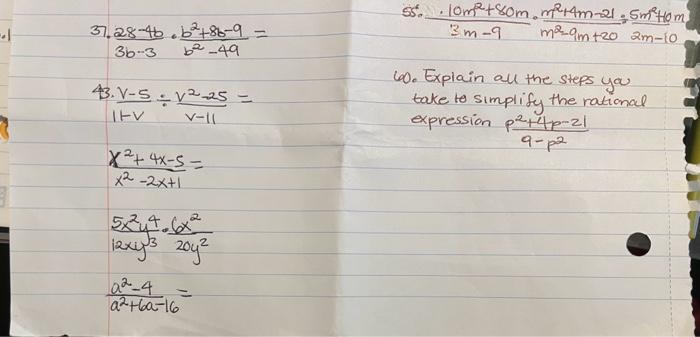 37. 28-4b/3b-3 · b²+8b-9/b²-49 =
43. V-5/11-V ÷ V²-25/V-11 =
x²+4x-5/x²-2x+1 =
5x²y⁴/12xy³ · 6x²/20y²
a²-4/a²+6a-16 =
55. 10m²+80m/3m-9 · m²+4m-21/m²-9m+20 ÷ 5m²+10m/2m-10
60. Explain all the steps you
take to simplify the rational
expression p²+4p-21/9-p²